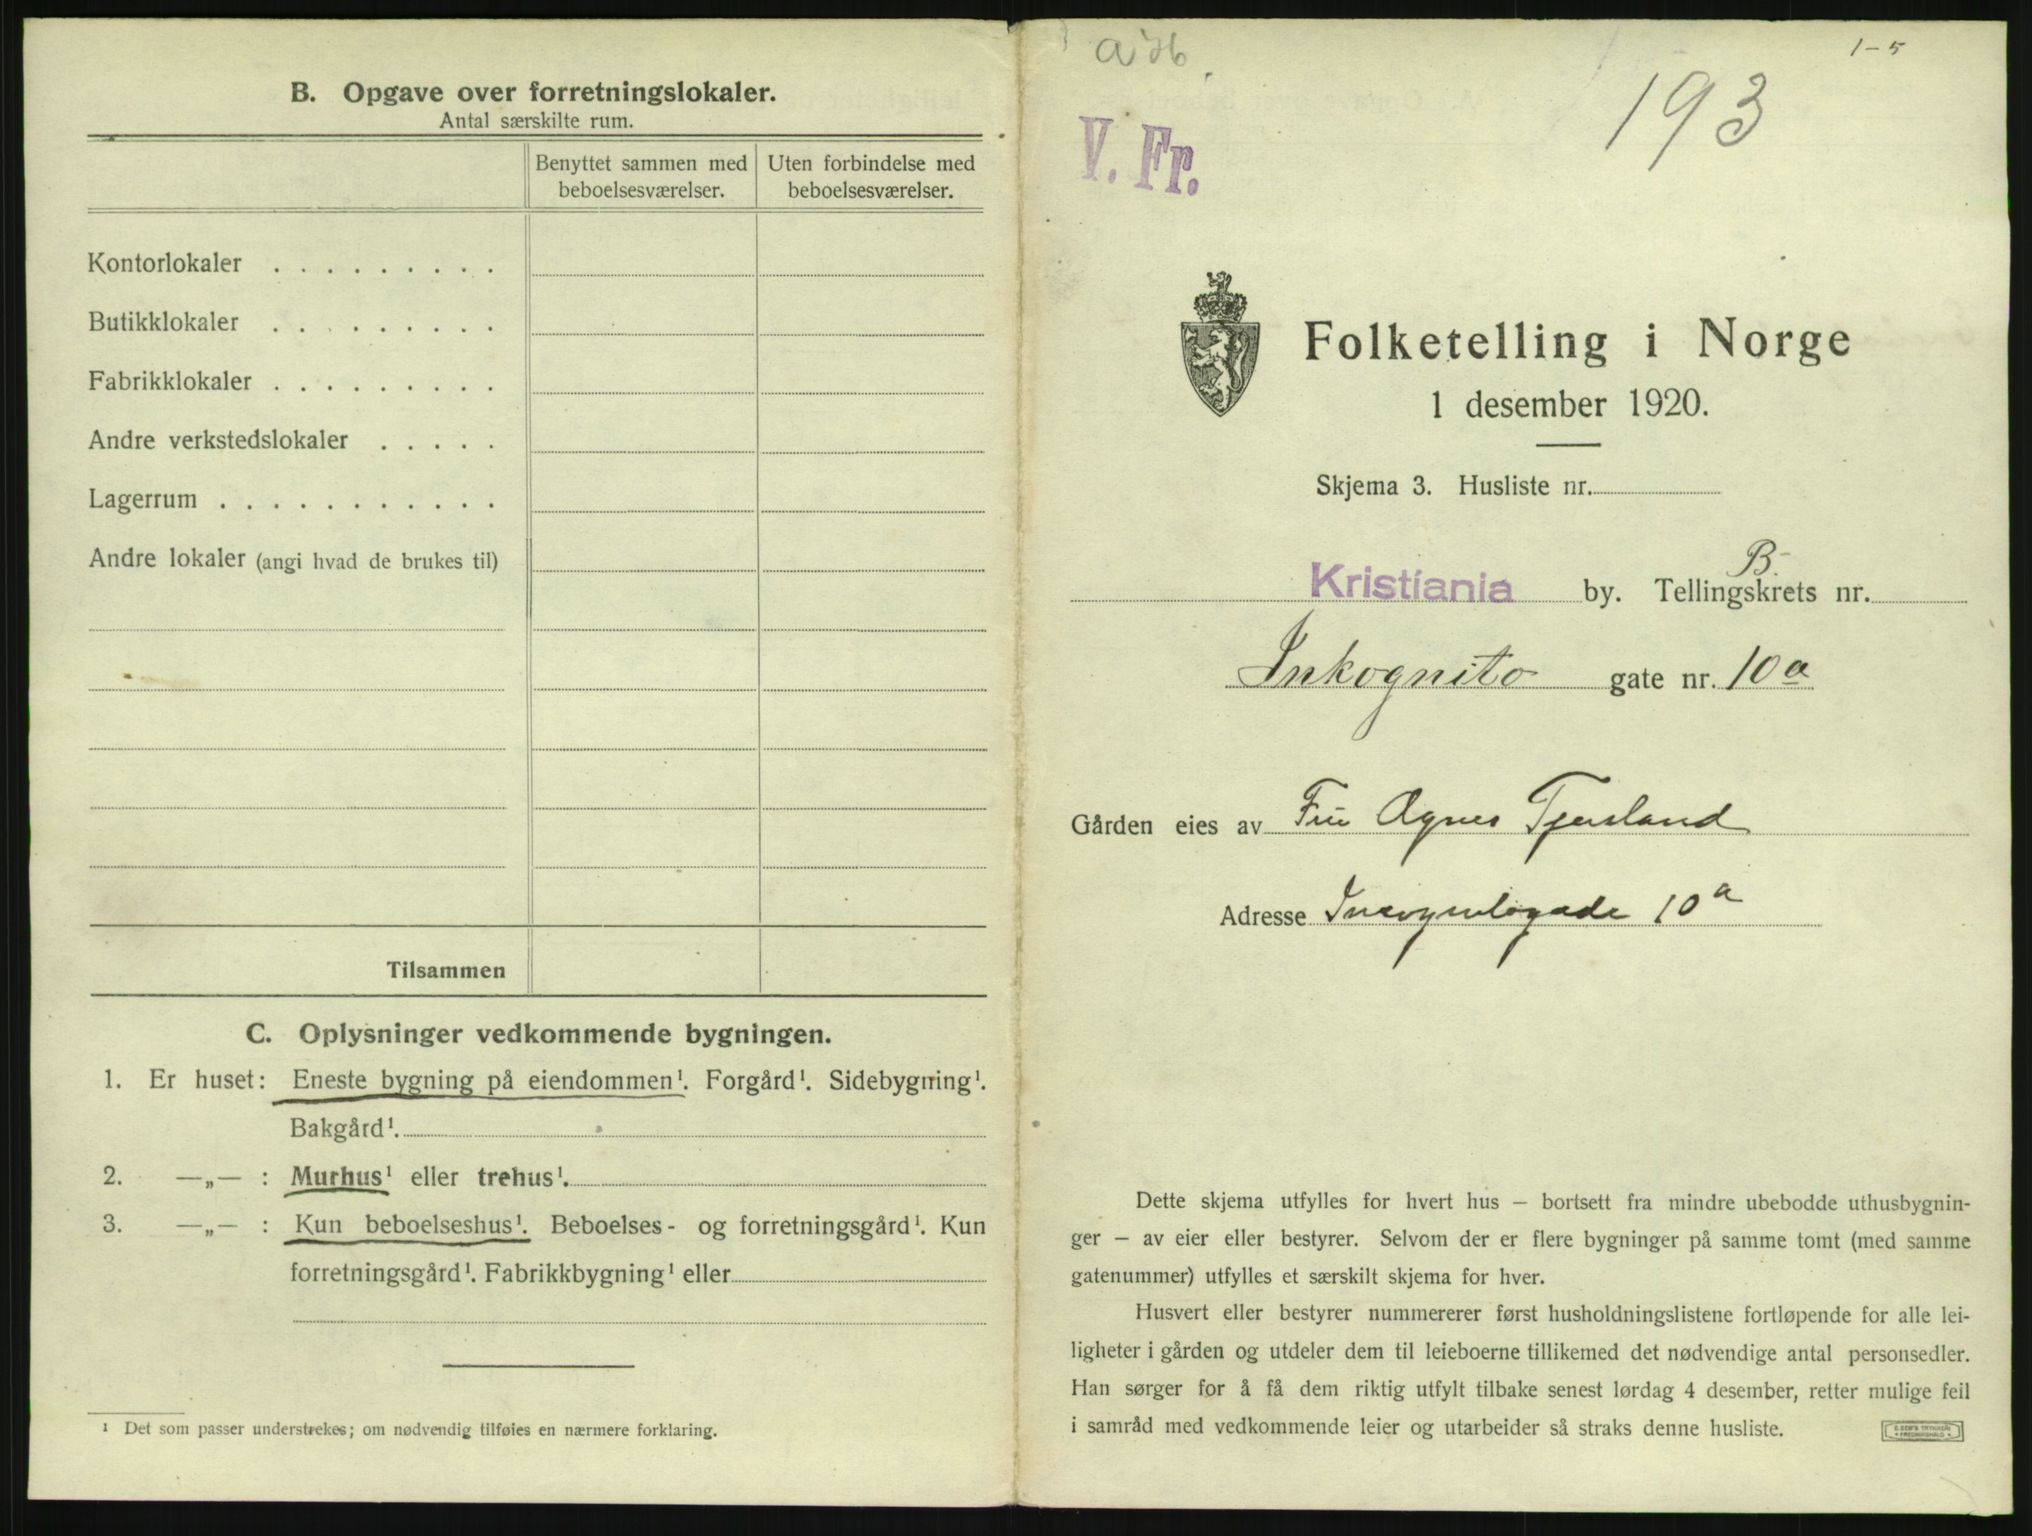 B. Opgave over forretningslokaler.
Antal særskilte rum.
Benyttet sammen med beboelsesværelser.
Uten forbindelse med beboelsesværelser.
Kontorlokaler . . . . . . . . .
Butikklokaler . . . . . . . . .
Fabrikklokaler . . . . . . . . .
Andre verkstedslokaler . . . . .
Lagerrum . . . . . . . . . . .
Andre lokaler (angi hvad de brukes til)
Tilsammen
C. Oplysninger vedkommende bygningen.
1. Er huset: Eneste bygning på eiendommen¹. Forgård¹. Sidebygning¹.
Bakgård¹.
2. —„— : Murhus¹ eller trehus¹.
3. —„— : Kun beboelseshus¹. Beboelses- og forretningsgård¹. Kun
forretningsgård¹. Fabrikkbygning¹ eller
¹ Det som passer understrekes; om nødvendig tilføies en nærmere forklaring.
1-5
193
V. Fr.
Folketelling i Norge
1 desember 1920.
Skjema 3. Husliste nr.
B.
Kristiania by. Tellingskrets nr.
Inkognito gate nr. 10a
Gården eies av Fru Agnes Tjersland
Adresse 10a
Dette skjema utfylles for hvert hus – bortsett fra mindre ubebodde uthusbygnin-
ger – av eier eller bestyrer. Selvom der er flere bygninger på samme tomt (med samme
gatenummer) utfylles et særskilt skjema for hver.
Husvert eller bestyrer nummererer først husholdningslistene fortløpende for alle lei-
ligheter i gården og utdeler dem til leieboerne tillikemed det nødvendige antal personsedler.
Han sørger for å få dem riktig utfylt tilbake senest lørdag 4 desember, retter mulige feil
i samråd med vedkommende leier og utarbeider så straks denne husliste.